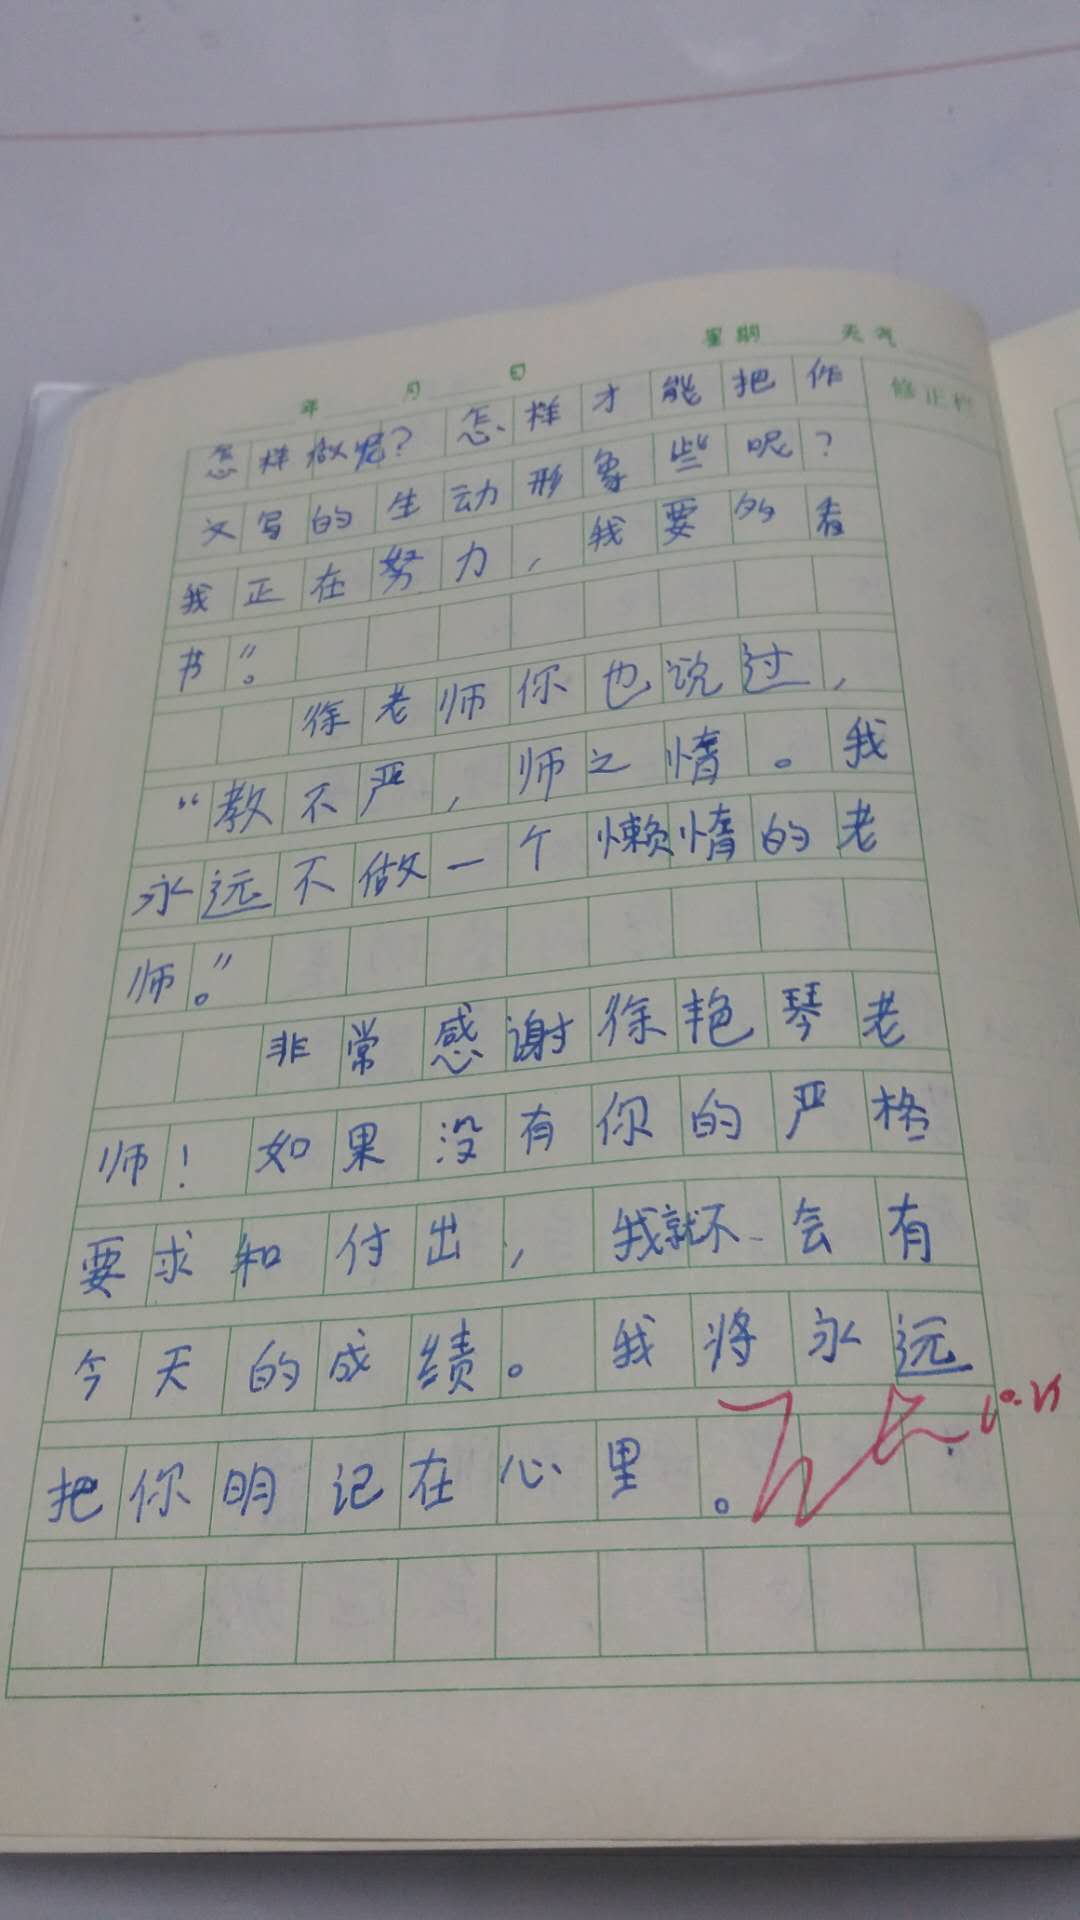 星期 天气
年 月 日
修正栏
怎样做呢？怎样才能把作
文写的生动形象些呢？
我正在努力，我要多看
书”。
徐老师你也说过，
“教不严，师之惰。我
永远不做一个懒惰的老
师。”
非常感谢徐艳琴老
师！如果没有你的严格
要求和付出，我就不会有
今天的成绩。我将永远
把你明记在心里。
10.25